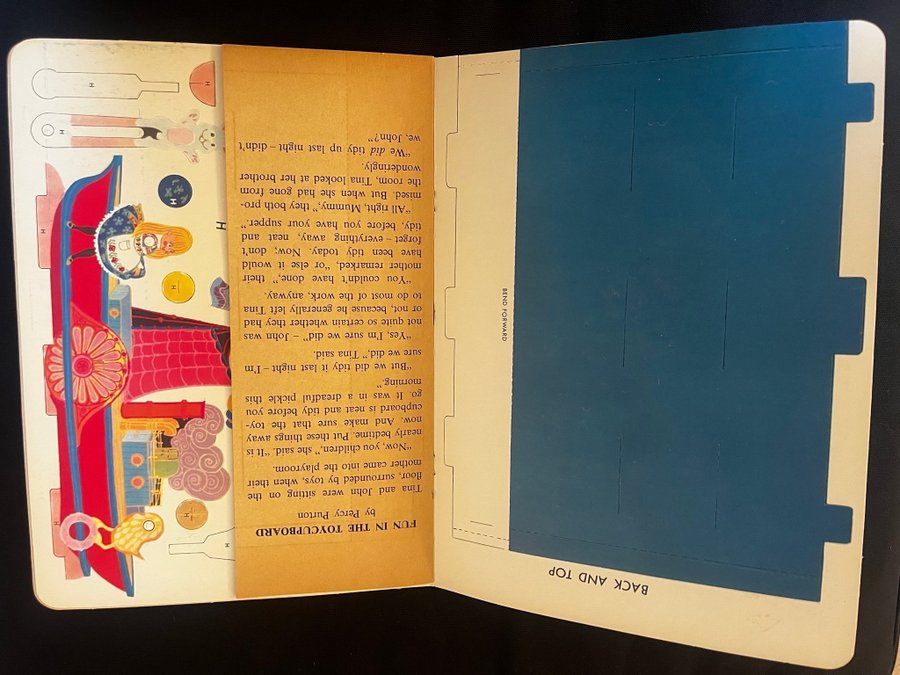 FUN IN THE TOYCUPBOARD
by Percy Purton
Tina and John were sitting on the
floor, surrounded by toys, when their
mother came into the playroom.
“Now, you children,” she said. “It is
nearly bedtime. Put these things away
now. And make sure that the toy-
cupboard is neat and tidy before you
go. It was in a dreadful pickle this
morning.”
“But we did tidy it last night – I’m
sure we did,” Tina said.
“Yes, I’m sure we did” – John was
not quite so certain whether they had
or not, because he generally left Tina
to do most of the work, anyway.
“You couldn’t have done,” their
mother remarked, “or else it would
have been tidy today. Now; don’t
forget – everything away, neat and
tidy, before you have your supper.”
“All right, Mummy,” they both pro-
mised. But when she had gone from
the room, Tina looked at her brother
wonderingly.
“We did tidy up last night – didn’t
we, John?”
BACK AND TOP
BEND FORWARD
H
H
H
H
H
H
H
H